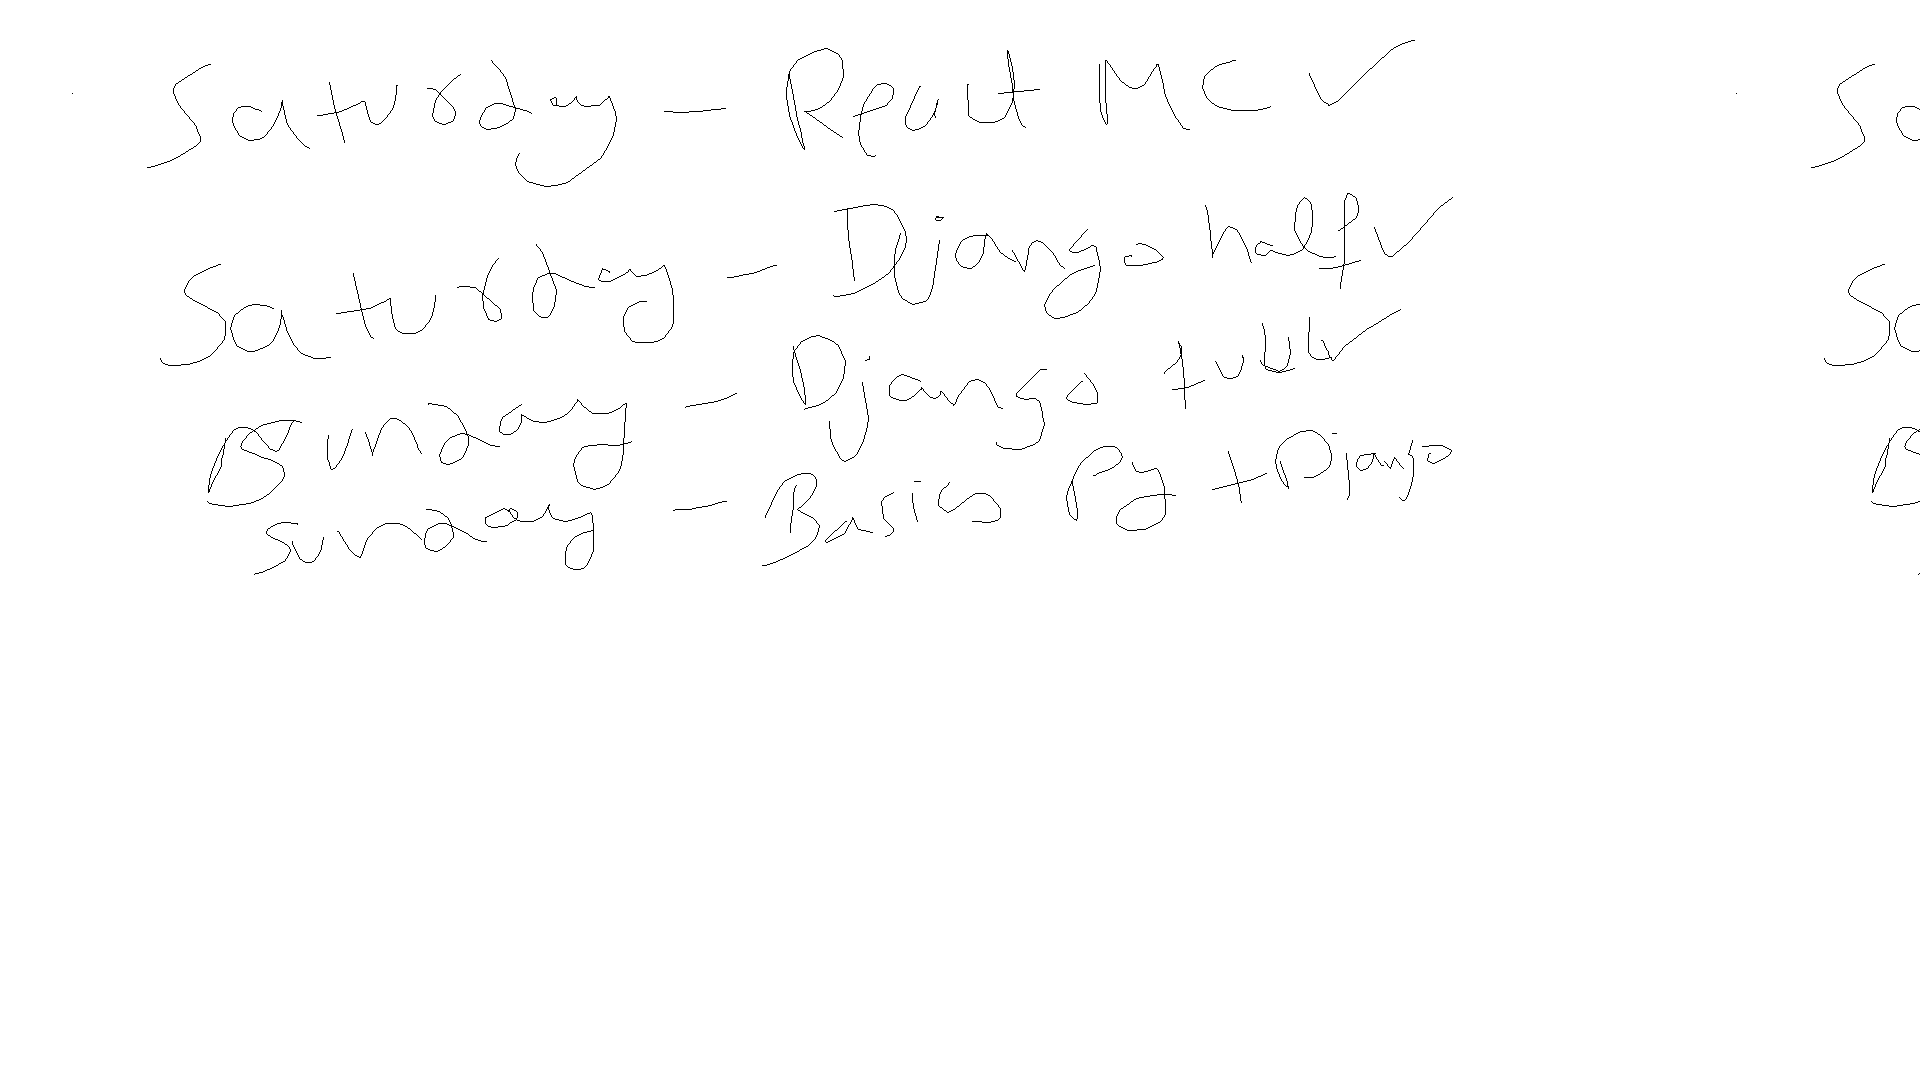 Saturday - React MC ✓
Saturday - Django half ✓
Sunday - Django full ✓
Sunday - Basics Py + Django